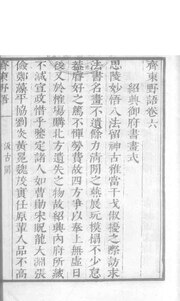 齊東野語卷六
紹興御府書畫式
思陵妙悟八法留神古雅當干戈俶擾之際訪求
法書名畫不遺餘力清閒之燕展玩摹搨不少怠
蓋睿好之篤不憚勞費故四方爭以奉上無虛日
後又於榷場購北方遺失之物故紹興內府所藏
不減宣政惜乎鑒定諸人如曹勛宋貺龍大淵張
儉鄭藻平協劉炎黃冕魏茂實任原輩人品不高
齊東野語
汲古閣